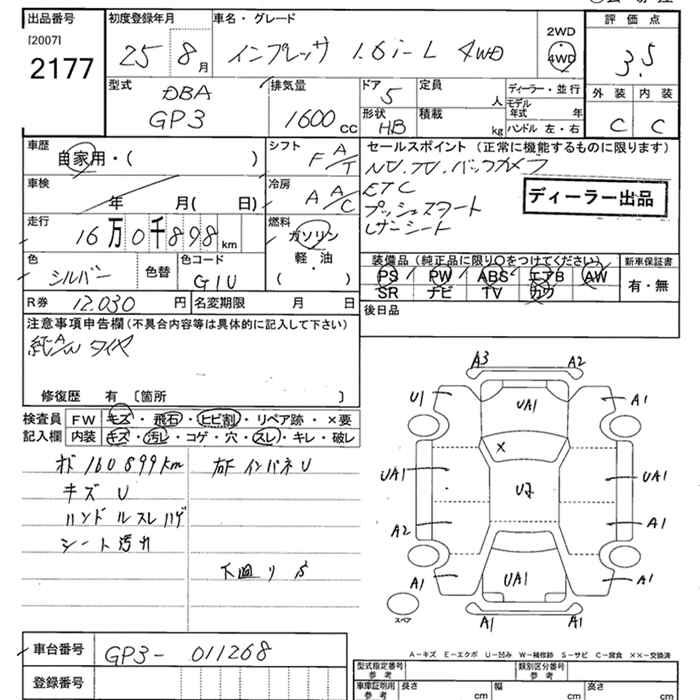 出品番号 初度登録年月 車名・グレード 評価点
[2007] 2177
25 8月 インプレッサ 1.6i-L 4WD
2WD
4WD
3.5
型式 DBA GP3
排気量 1600cc
ドア 5
形状 HB
定員 人
積載 kg
ディーラー・並行
モデル年式 年
ハンドル 左・右
外装 内装
C C
車歴 自家用・( )
シフト F A/T
車検 年 月( 日)
冷房 A A/C
走行 16万0千898km
燃料 ガソリン
軽・油
( )
セールスポイント (正常に機能するものに限ります)
NV.TV.バックカメラ
ETC
プッシュスタート
レザーシート
ディーラー出品
色 シルバー 色替 色コード G1U
装備品 (純正品に限り○をつけてください) 新車保証書
PS PW ABS エアB AW
SR ナビ TV カワ
有・無
R券 12,030円 名変期限 月 日
後日品
注意事項申告欄 (不具合内容等は具体的に記入して下さい)
純A/W タイヤ
修復歴 有 〔箇所 〕
検査員記入欄
FW キズ・飛石・ヒビ割・リペア跡・×要
内装 キズ・汚レ・コゲ・穴・スレ・キレ・破レ
オド 160899km
キズ U
ハンドルスレハゲ
シート汚れ
右F インパネU
下廻り S
A3 A2
U1 UA1 A1
×
UA1 U2 UA1
A2 A1
A1 UA1 A1
A1 A1
スペア
A-キズ E-エクボ U-凹み W-補修跡 S-サビ C-腐食 ××-交換済
車台番号 GP3- 011268
登録番号
型式指定番号 参考 類別区分番号 参考
車庫証明用 参考 長さ cm 幅 cm 高さ cm